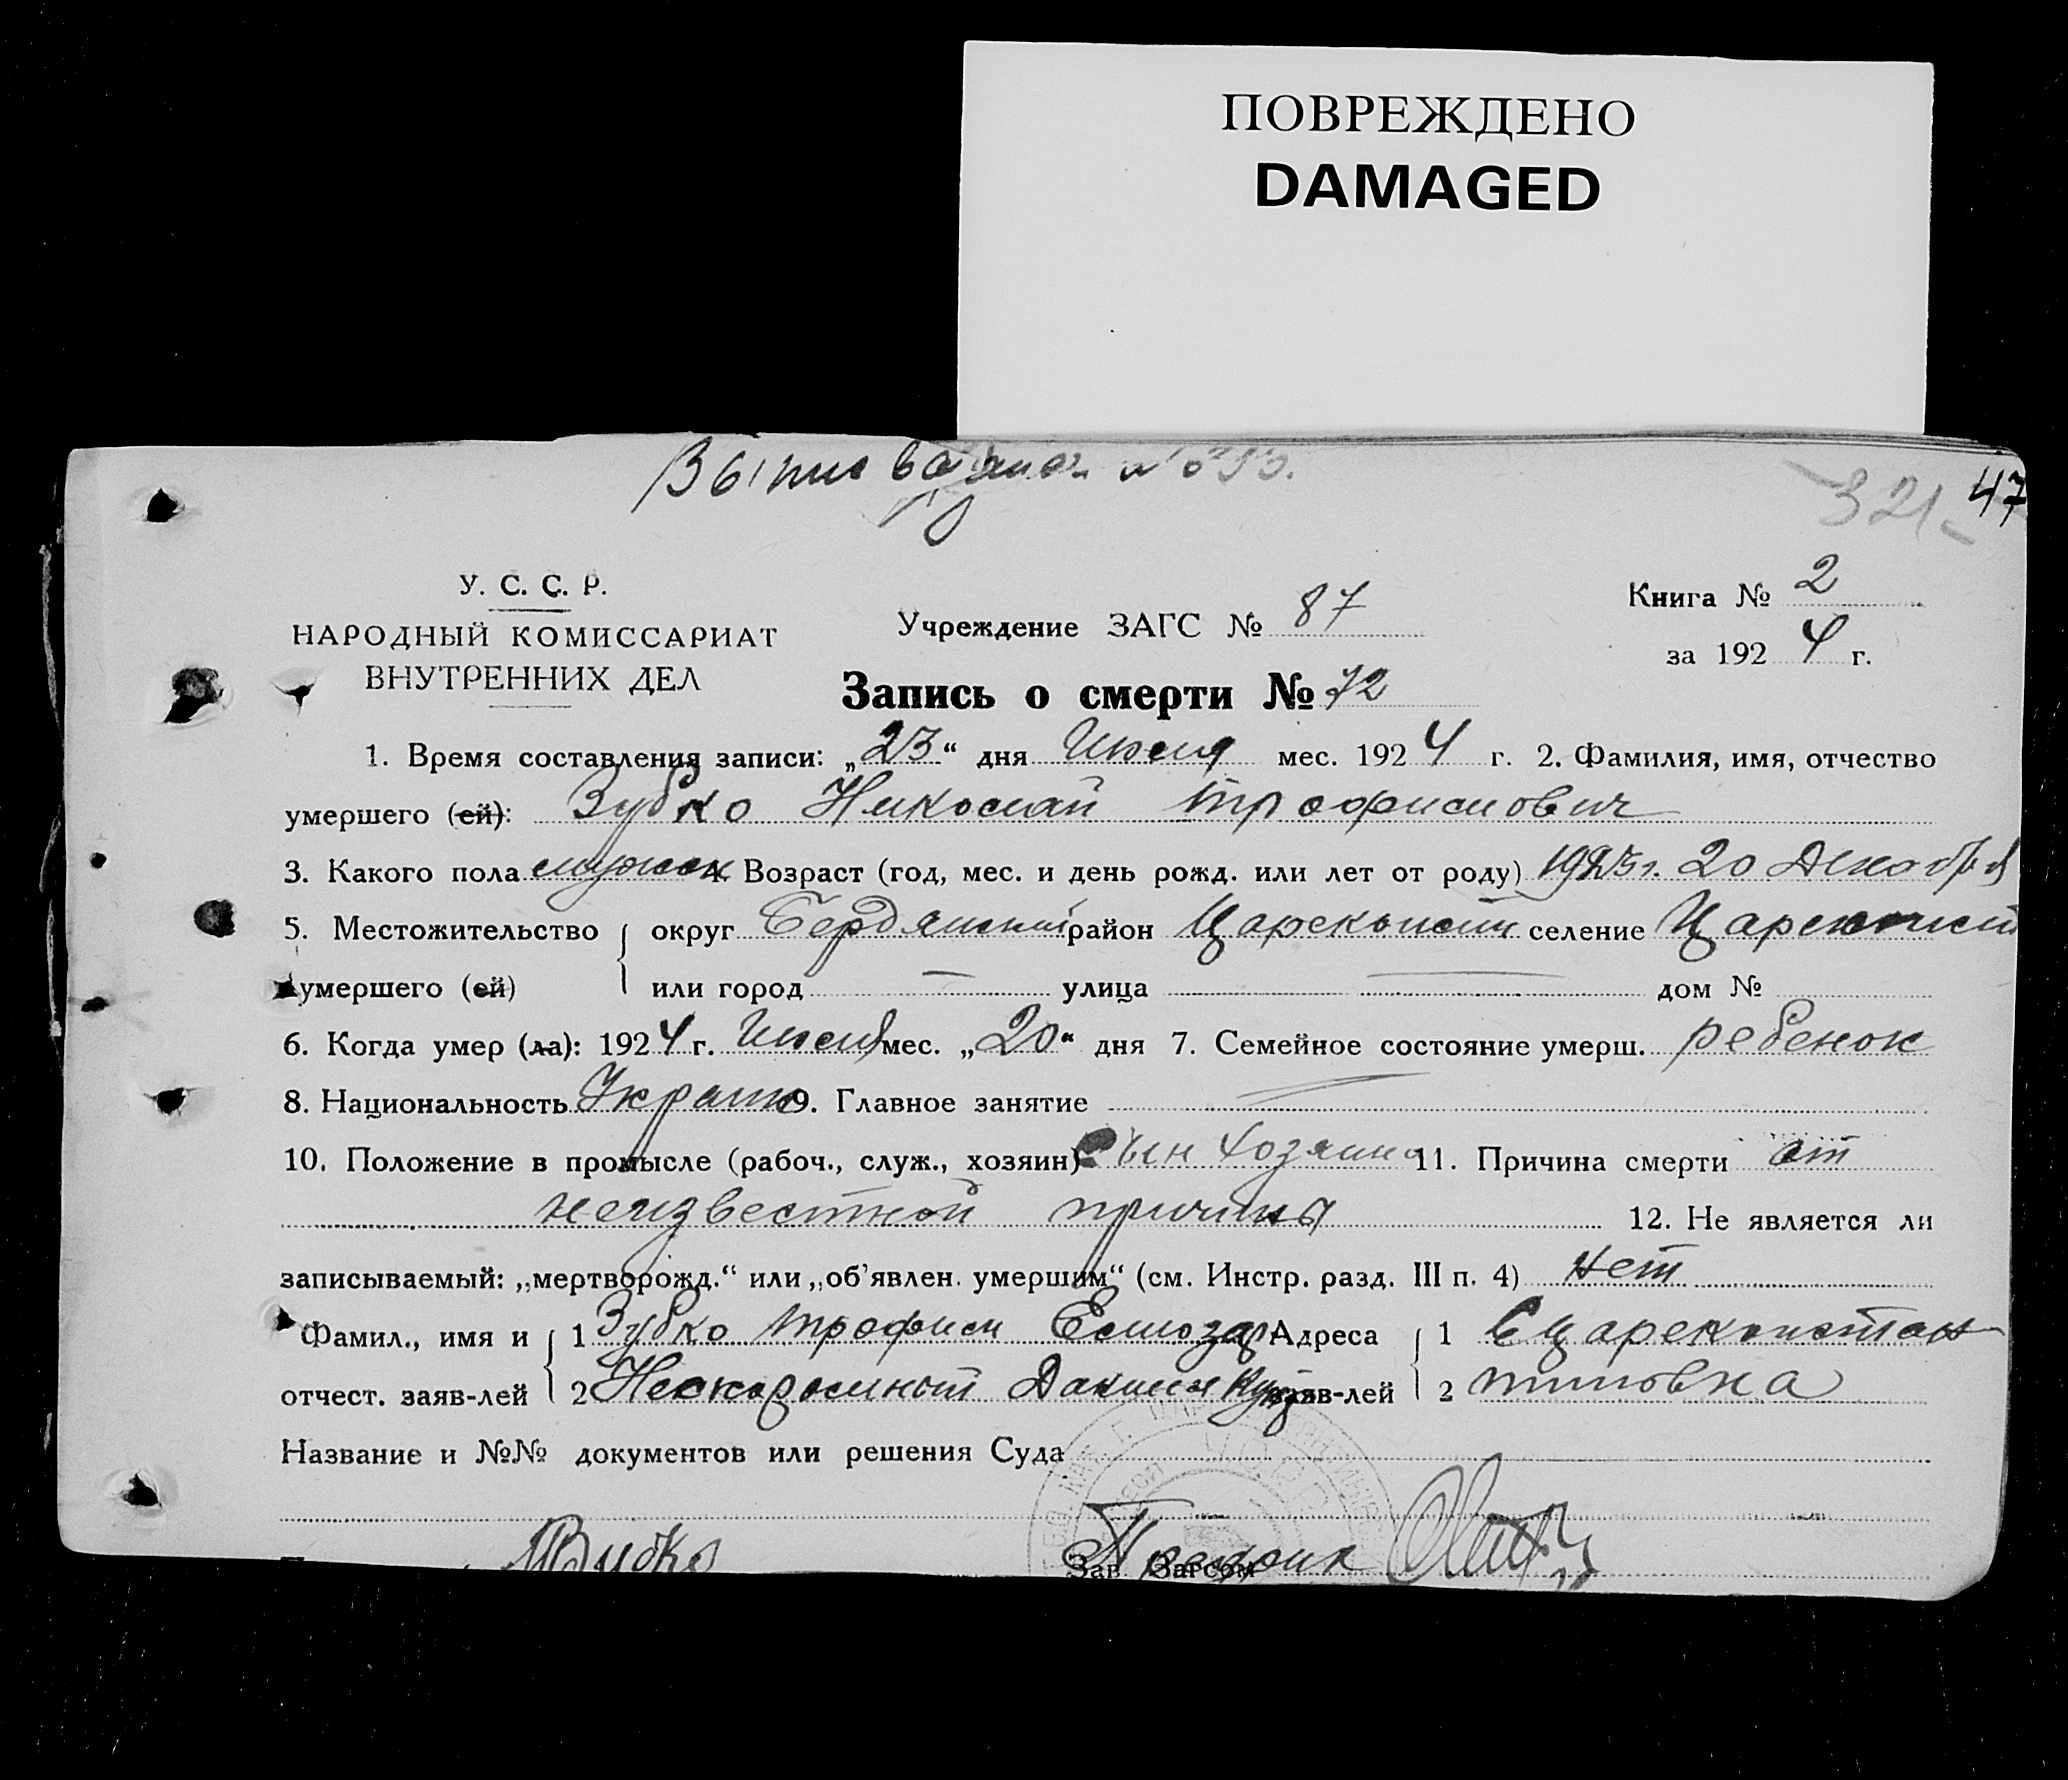 ПОВРЕЖДЕНО
DAMAGED
321 47
У. С. С. Р.
НАРОДНЫЙ КОМИССАРИАТ
ВНУТРЕННИХ ДЕЛ
Учреждение ЗАГС № 87
Книга № 2
за 1924 г.
Запись о смерти № 72
1. Время составления записи: „23“ дня Июля мес. 1924 г. 2. Фамилия, имя, отчество
умершего (ей): Зубко Николай Трофимович
3. Какого пола мужск 4. Возраст (год, мес. и день рожд. или лет от роду) 20 Декабря
5. Местожительство округ Бердянский район Цареконст селение Цареконст
умершего (ей) или город — улица — дом №
6. Когда умер (ла): 1924 г. Июля мес. „20“ дня 7. Семейное состояние умерш. ребенок
8. Национальность Украин 9. Главное занятие —
10. Положение в промысле (рабоч., служ., хозяин) Сын хозяина 11. Причина смерти от
неизвестной причины 12. Не является ли
записываемый: „мертворожд.“ или „об'явлен. умершим“ (см. Инстр. разд. III п. 4) нет
Фамил., имя и 1 Зубко Трофим Адреса 1 С Цареконстан
отчест. заяв-лей 2 Нескоромный заяв-лей 2 тиновка
Название и №№ документов или решения Суда
Зубко
Зав. Загсом